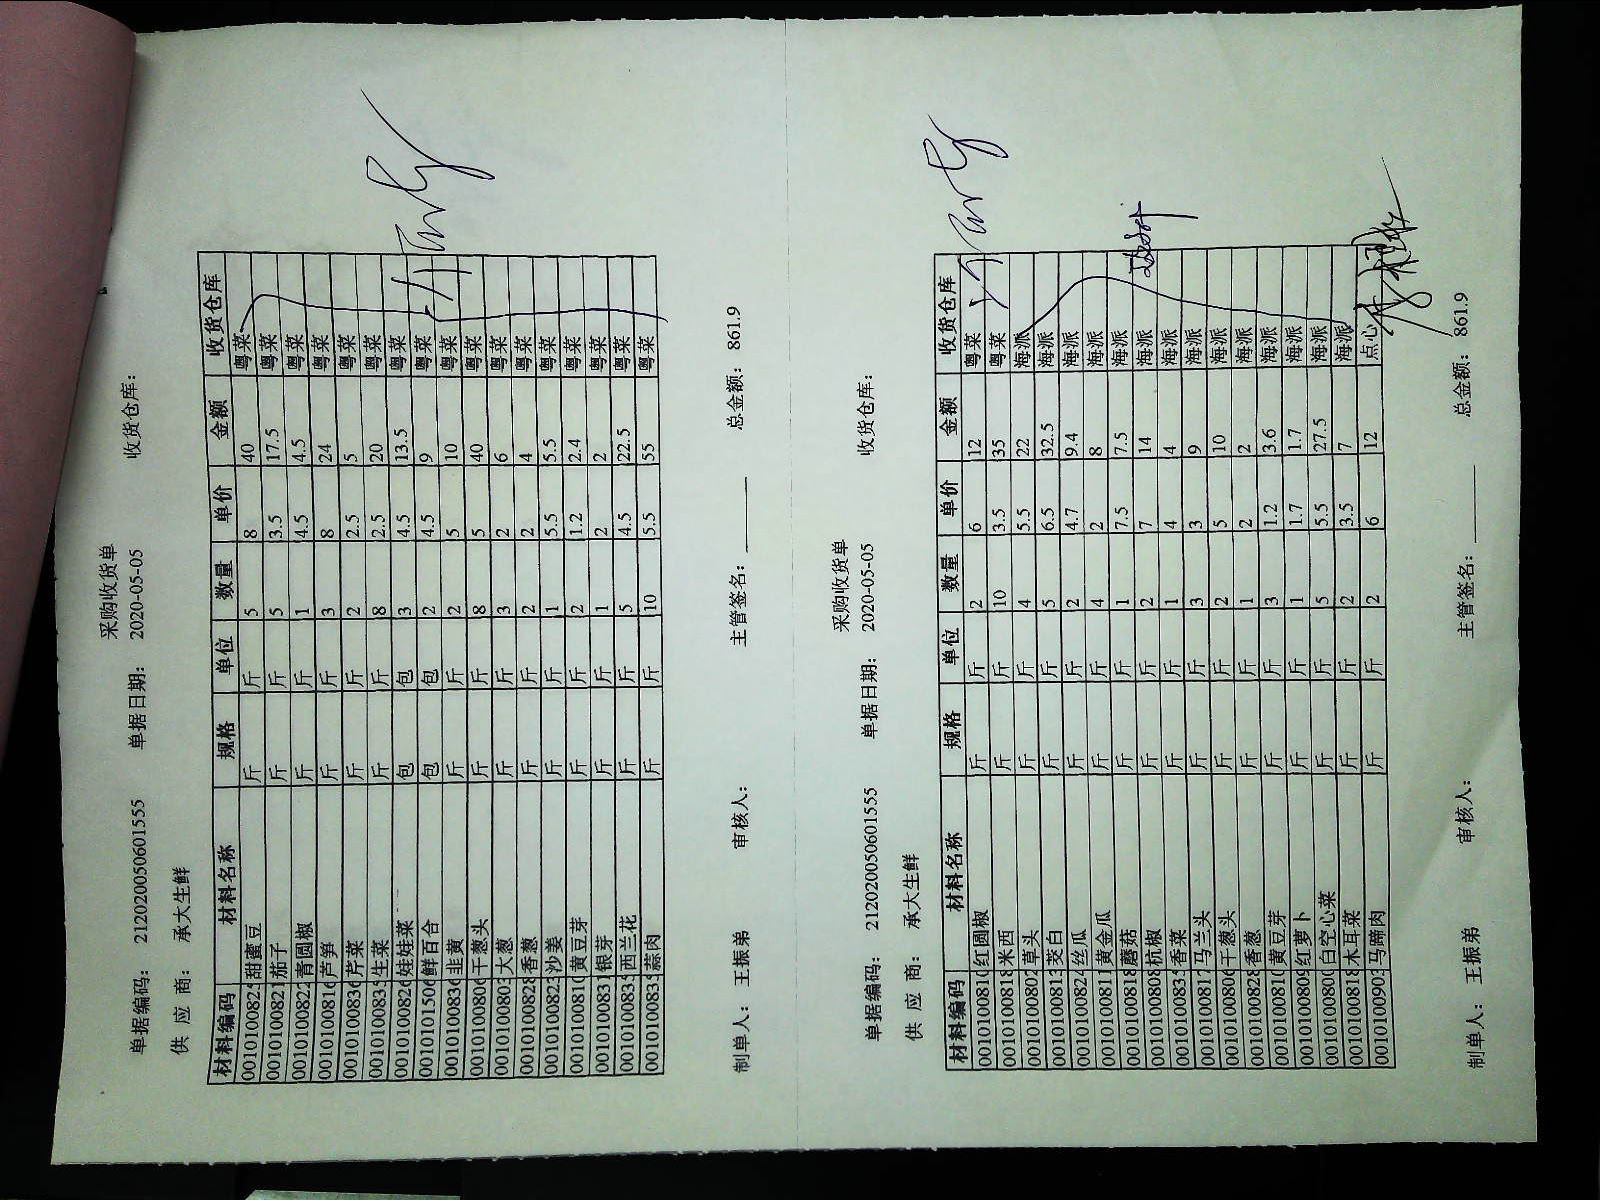 采购收货单
单据编码： 212020050601555 单据日期： 2020-05-05 收货仓库：
供 应 商： 承大生鲜
材料编码 材料名称 规格 单位 数量 单价 金额 收货仓库
0010100825 甜蜜豆 斤 斤 5 8 40 粤菜
0010100821 茄子 斤 斤 5 3.5 17.5 粤菜
0010100822 青圆椒 斤 斤 1 4.5 4.5 粤菜
0010100816 芦笋 斤 斤 3 8 24 粤菜
0010100836 芹菜 斤 斤 2 2.5 5 粤菜
0010100835 生菜 斤 斤 8 2.5 20 粤菜
0010100826 娃娃菜 包 包 3 4.5 13.5 粤菜
0010101506 鲜百合 包 包 2 4.5 9 粤菜
0010100836 韭黄 斤 斤 2 5 10 粤菜
0010100806 干葱头 斤 斤 8 5 40 粤菜
0010100803 大葱 斤 斤 3 2 6 粤菜
0010100828 香葱 斤 斤 2 2 4 粤菜
0010100823 沙姜 斤 斤 1 5.5 5.5 粤菜
0010100810 黄豆芽 斤 斤 2 1.2 2.4 粤菜
0010100831 银芽 斤 斤 1 2 2 粤菜
0010100835 西兰花 斤 斤 5 4.5 22.5 粤菜
0010100835 蒜肉 斤 斤 10 5.5 55 粤菜
制单人： 王振弟 审核人： 主管签名： 总金额： 861.9
采购收货单
单据编码： 212020050601555 单据日期： 2020-05-05 收货仓库：
供 应 商： 承大生鲜
材料编码 材料名称 规格 单位 数量 单价 金额 收货仓库
0010100810 红圆椒 斤 斤 2 6 12 粤菜
0010100818 米西 斤 斤 10 3.5 35 粤菜
0010100802 草头 斤 斤 4 5.5 22 海派
0010100813 茭白 斤 斤 5 6.5 32.5 海派
0010100824 丝瓜 斤 斤 2 4.7 9.4 海派
0010100811 黄金瓜 斤 斤 4 2 8 海派
0010100818 蘑菇 斤 斤 1 7.5 7.5 海派
0010100808 杭椒 斤 斤 2 7 14 海派
0010100835 香菜 斤 斤 1 4 4 海派
0010100817 马兰头 斤 斤 3 3 9 海派
0010100806 干葱头 斤 斤 2 5 10 海派
0010100828 香葱 斤 斤 1 2 2 海派
0010100810 黄豆芽 斤 斤 3 1.2 3.6 海派
0010100809 红萝卜 斤 斤 1 1.7 1.7 海派
0010100800 白空心菜 斤 斤 5 5.5 27.5 海派
0010100818 木耳菜 斤 斤 2 3.5 7 海派
0010100903 马蹄肉 斤 斤 2 6 12 点心
制单人： 王振弟 审核人： 主管签名： 总金额： 861.9